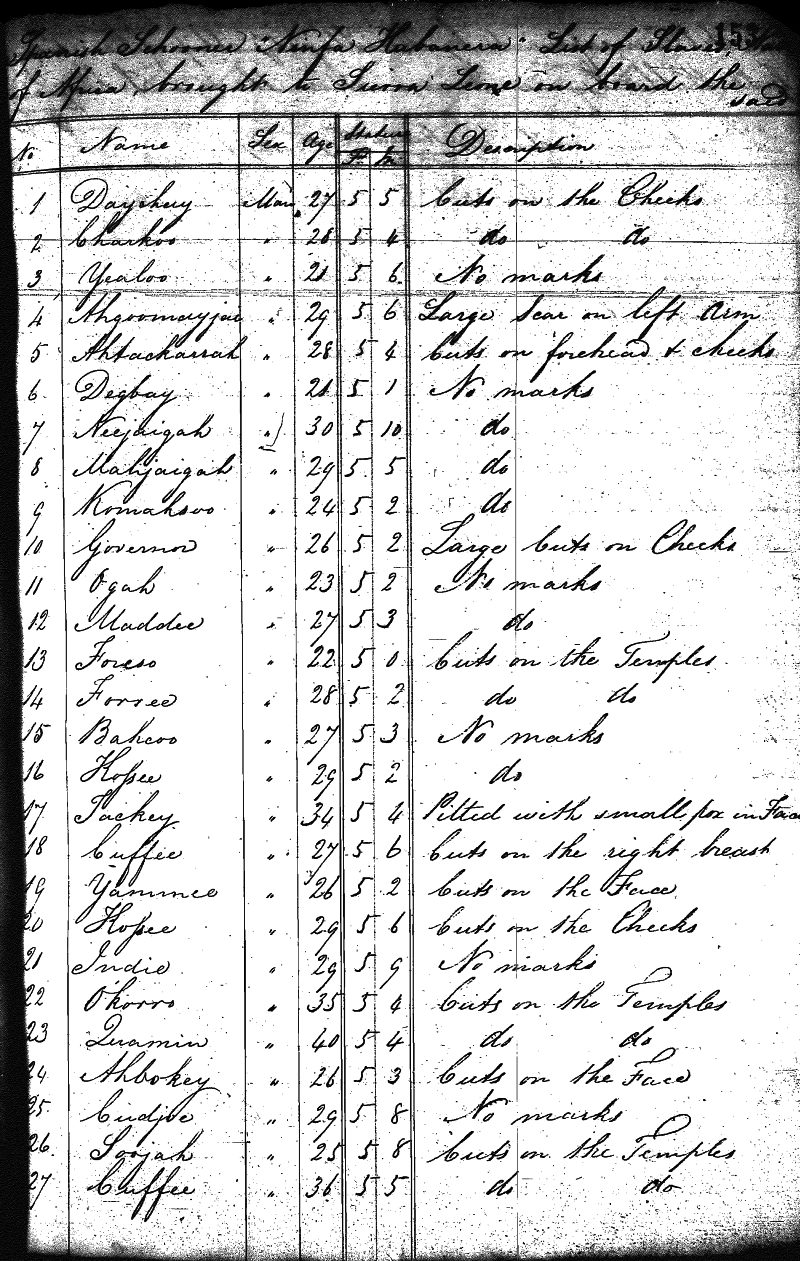 153
Spanish Schooner "Ninfa Habanera" List of Slaves
of Africa, brought to Sierra Leone on board the said
No Name Sex Age Stature Description
Ft In
1 Daychuy Man 27 5 5 Cuts on the Cheeks
2 Charkoo " 28 5 4 do do
3 Yealoo " 21 5 6 No marks
4 Ahgoomayjai " 29 5 6 Large Scar on left Arm
5 Ahtackarrah " 28 5 4 Cuts on forehead & cheeks
6 Degbay " 21 5 1 No marks
7 Neejaigah " 30 5 10 do
8 Mahjaigah " 29 5 5 do
9 Komahsoo " 24 5 2 do
10 Governor " 26 5 2 Large Cuts on Cheeks
11 Ogah " 23 5 2 No marks
12 Maddee " 27 5 3 do
13 Foreso " 22 5 0 Cuts on the Temples
14 Forree " 28 5 2 do do
15 Bahcoo " 27 5 3 No marks
16 Hossee " 29 5 2 do
17 Tackey " 34 5 4 Pitted with small pox in Face
18 Cuffee " 27 5 6 Cuts on the right breast
19 Yammee " 26 5 2 Cuts on the Face
20 Hossee " 29 5 6 Cuts on the Cheeks
21 Indie " 29 5 9 No marks
22 Ohorro " 35 5 4 Cuts on the Temples
23 Quamin " 40 5 4 do do
24 Ahbokey " 26 5 3 Cuts on the Face
25 Cudjoe " 29 5 8 No marks
26 Soojah " 25 5 8 Cuts on the Temples
27 Cuffee " 36 5 5 do do